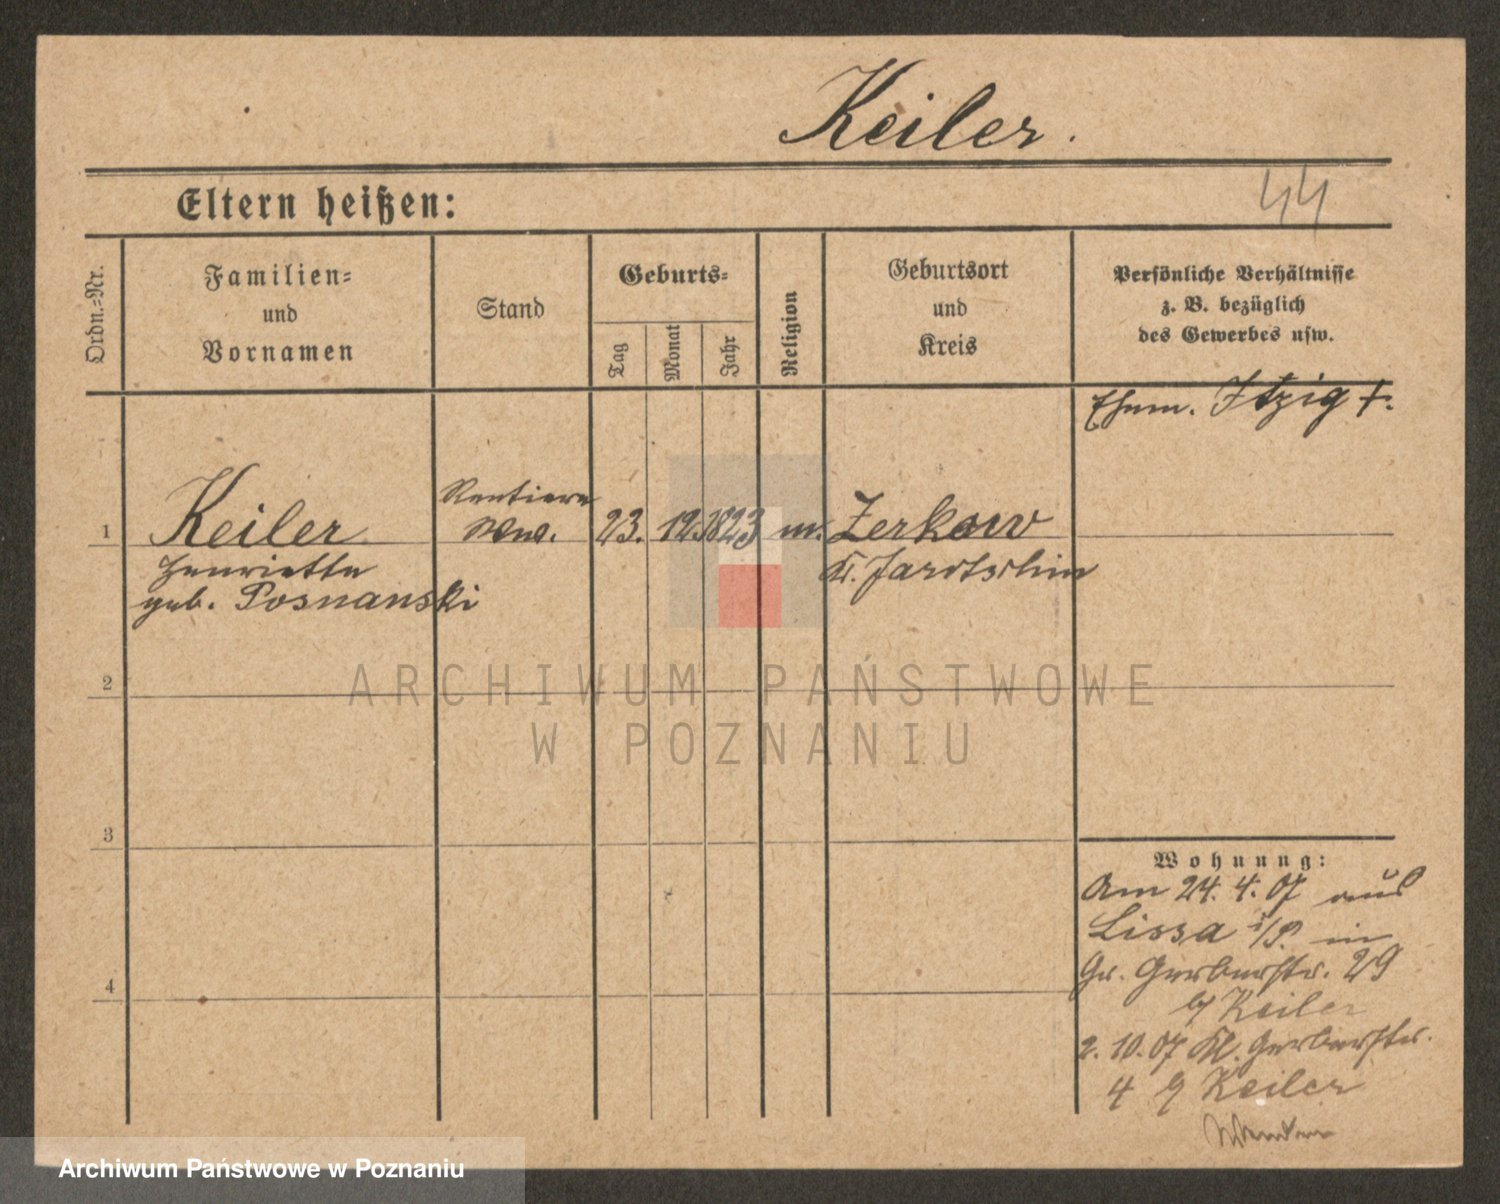 Keiler.
44
Eltern heißen:
Ordn.-Nr.
Familien-
und
Vornamen
Stand
Geburts-
Tag
Monat
Jahr
Religion
Geburtsort
und
Kreis
Persönliche Verhältnisse
z. B. bezüglich
des Gewerbes usw.
Ehem. Itzig †.
1
Keiler
Henriette
geb. Posnanski
Rentiere
Wwe.
23. 12. 1823 m. Zerkow
Kr. Jarotschin
2
3
4
Wohnung:
Am 24. 4. 07 aus
Lissa i/P. in
Gr. Gerberstr. 29
b/ Keiler
2. 10. 07 Kl. Gerberstr.
4 b/ Keiler
ARCHIWUM PAŃSTWOWE
W POZNANIU
Archiwum Państwowe w Poznaniu